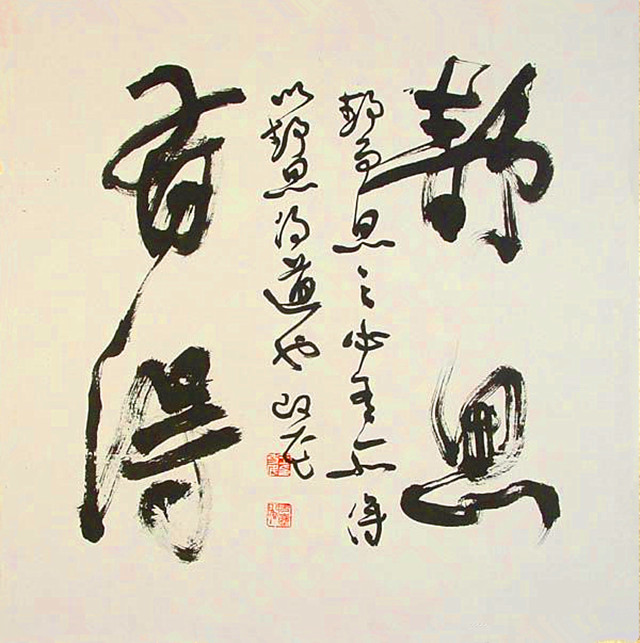 静思
静而思之必有所得
以静思得道也
有得